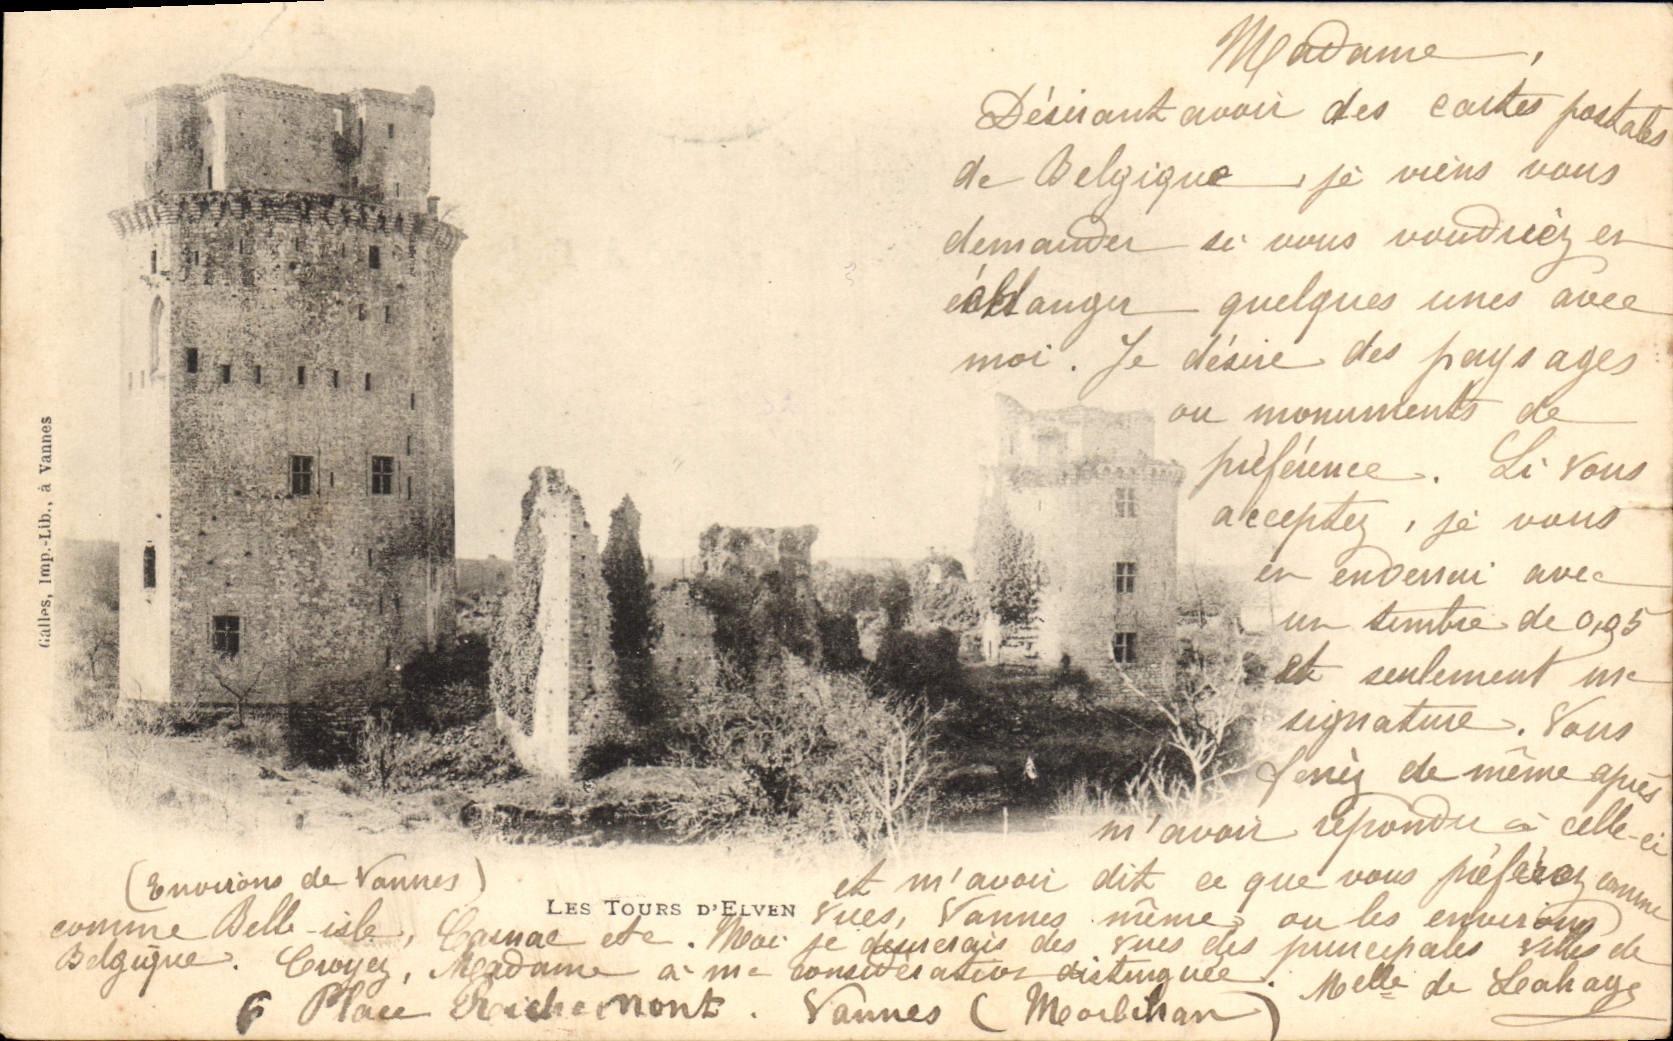 Madame,
Désirant avoir des cartes postales
de Belgique, je viens vous
demander si vous voudriez en
échanger quelques unes avec
moi. Je désire des paysages
ou monuments de
préférence. Si vous
acceptez, je vous
en enverrai avec
un timbre de 0,05
et seulement ma
signature. Vous
ferez de même après
m'avoir répondu à celle-ci
et m'avoir dit ce que vous préférez comme
vues, Vannes même ou les environs
(Environs de Vannes)
LES TOURS D'ELVEN
comme Belle-isle, Carnac etc. Moi je désirerais des vues des principales villes de
Belgique. Croyez, Madame à ma considération distinguée.
Melle de Lahaye
6 Place Richemont. Vannes (Morbihan)
Galles, Imp.-Lib., à Vannes